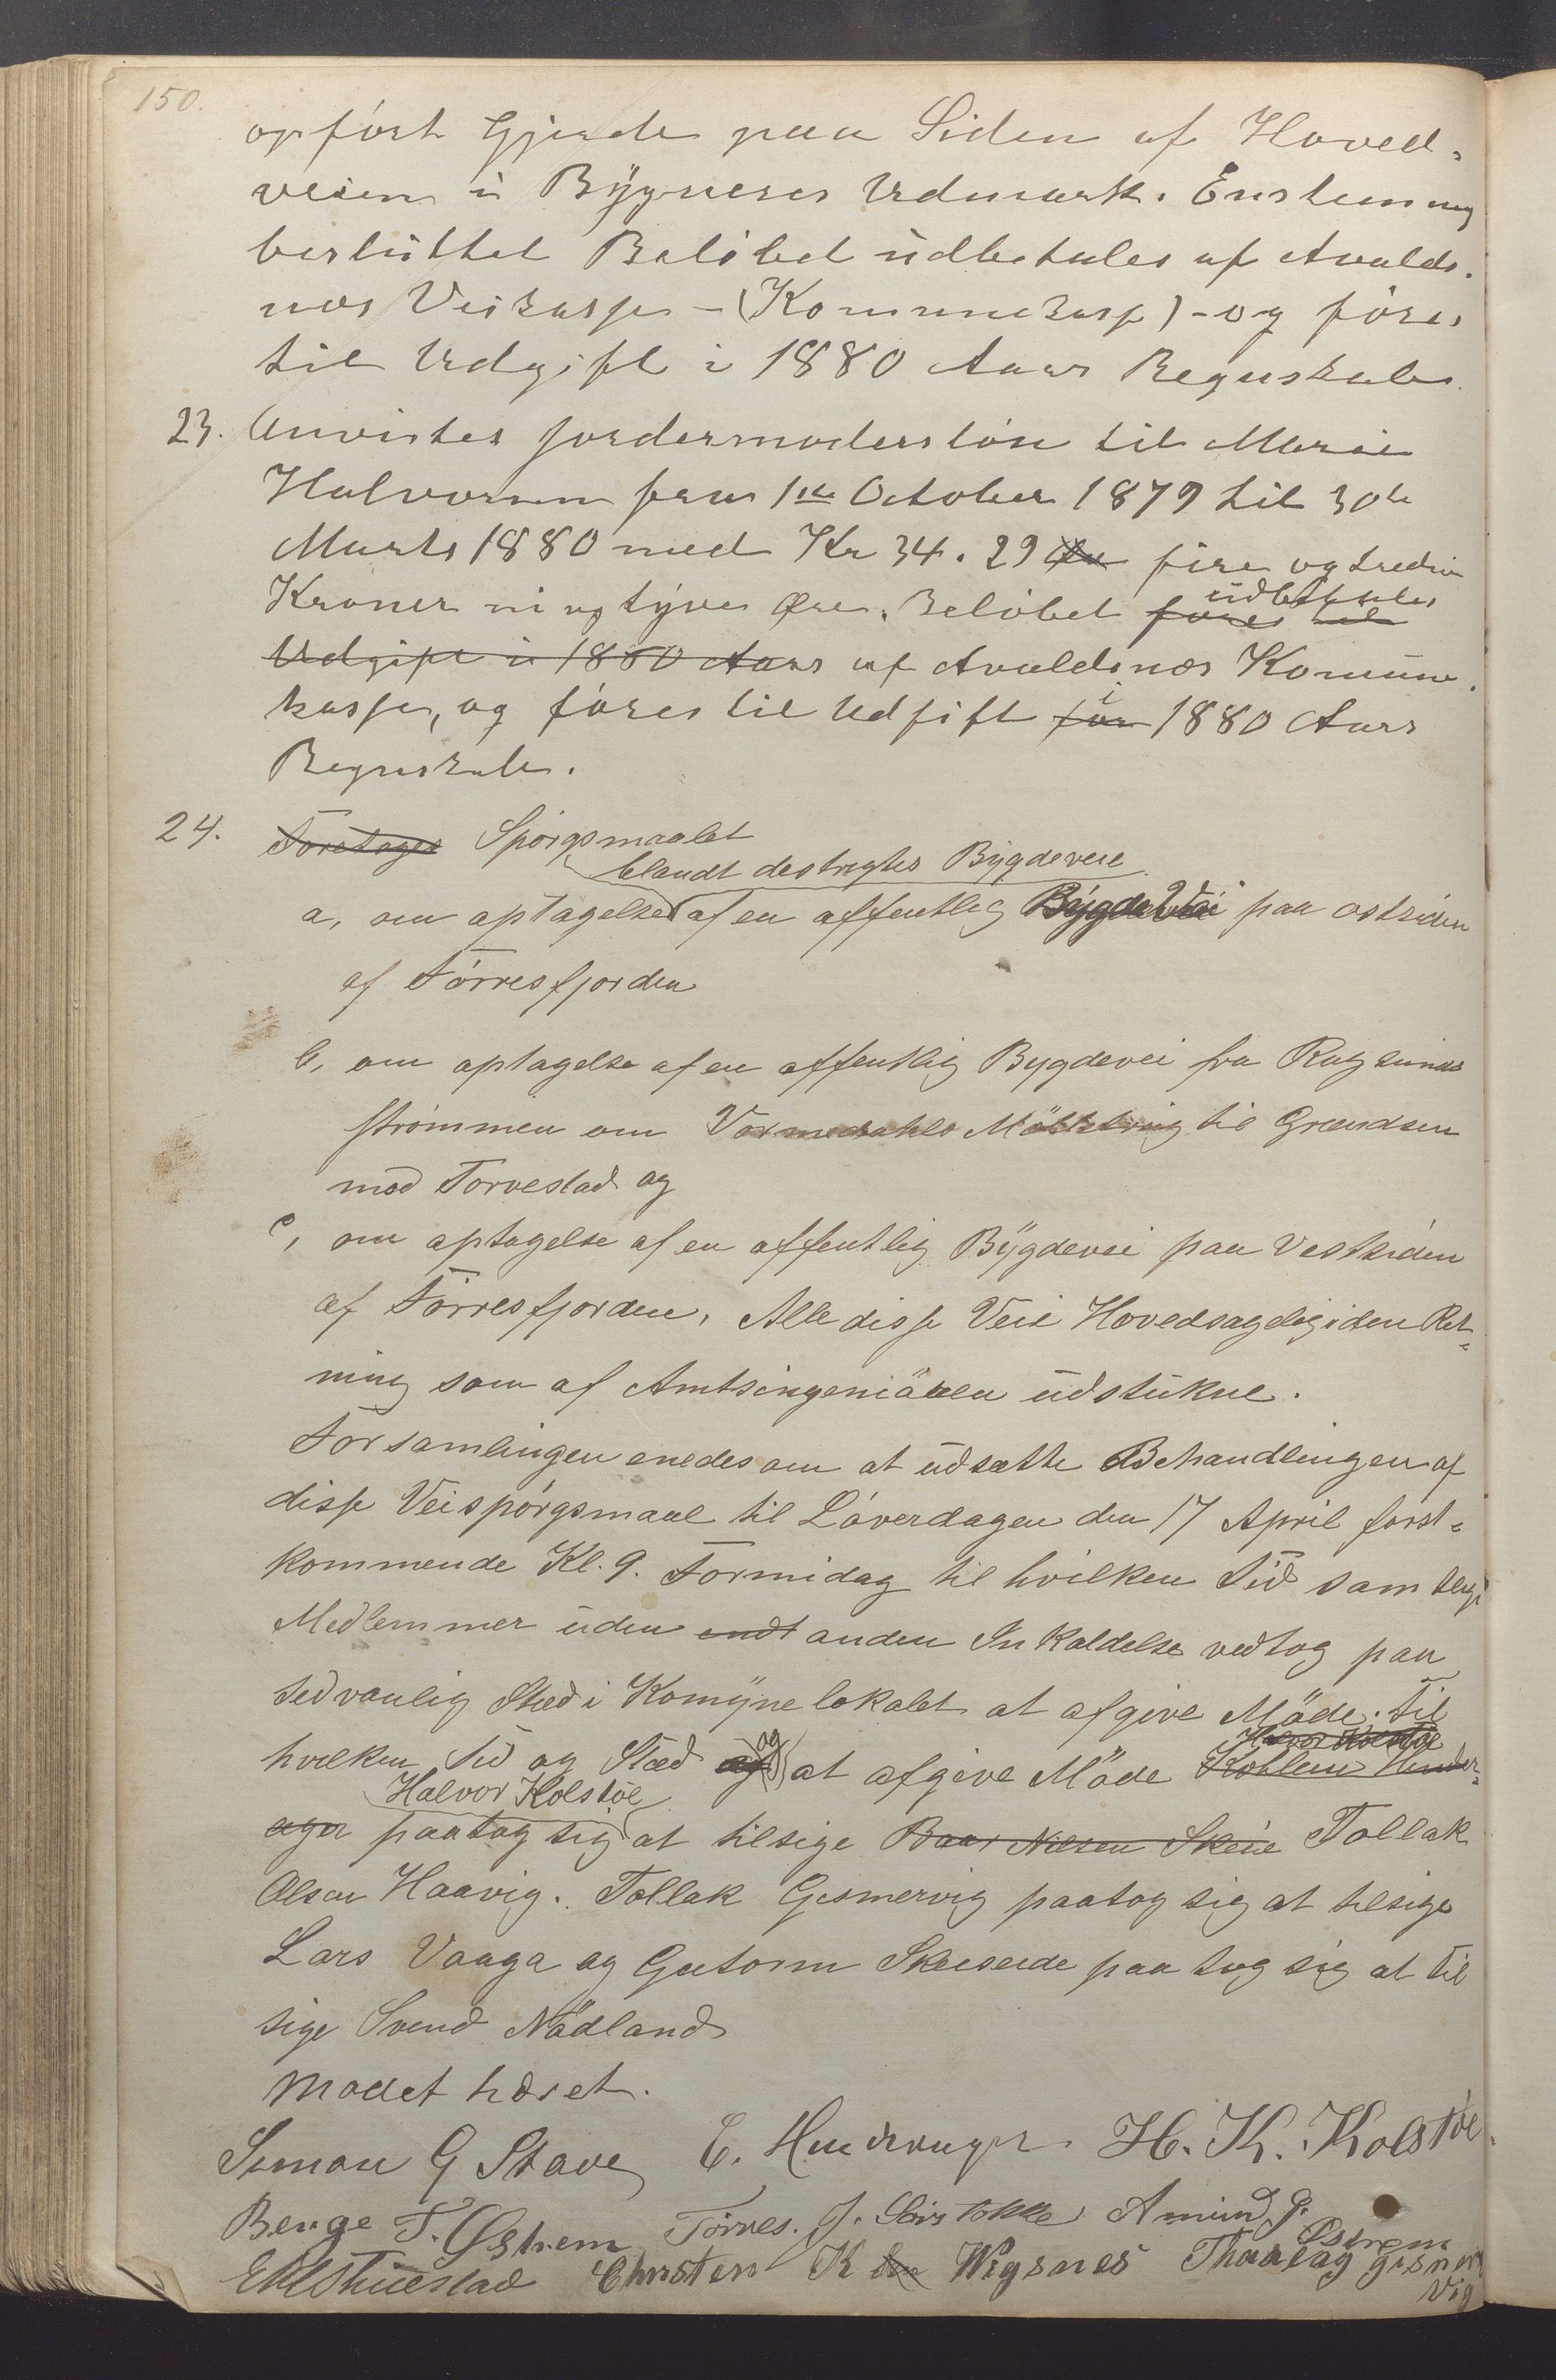 150.
opført Gjerde paa Siden af Hoved-
veien i Bygnæses Udmark. Enstemmig
besluttet Beløbet udbetales af Avalds-
næs Veikasse - (Kommunekasse) - og føres
til Udgift i 1880 Aars Regnskab.
23. Anvistes Jordermoderløn til Marie
Halvorsen fra 1ste October 1879 til 30te
Marts 1880 med Kr 34.29 Øre fire og tredive
Kroner ni og tyve Øre. Beløbet føres til udbetales
Udgift i 1880 Aars af Avaldsnæs Komune-
kasse, og føres til Udgift for i 1880 Aars
Regnskab.
24. Foretages Spørgsmaalet
blandt destrigtes Bygdeveie
a, om optagelse af en offentleg Bygdevei paa ostsiden
af Førresfjorden
b, om optagelse af en offentlig Bygdevei fra
strømmen om Vormedahls til Grændsen
mod Torvestad og
c, om optagelse af en offentlig Bygdevei paa Vestsiden
af Førresfjorden, Alle disse Veie Hovedsagelig i den Ret-
ning som af Amtsingeniøren udstukne.
Forsamlingen enedes om at udsætte Behandlingen af
disse Veispørgsmaal til Løverdagen den 17 April først-
kommende Kl. 9. Formidag til hvilken Tid samtlige
Medlemmer uden endt anden Inkaldelse vedtog paa
sedvanlig Stæd i Komynelokalet at afgive Møde. til
hvilken Tid og Stæd og at afgive Møde Halvor Kolstøe Hinder-
ager Halvor Kolstøe paatog sig at tilsige Baar Nilsen Skeie Tollak
Olsen Haavig. Tollak Gismervig paatog sig at tilsige
Lars Vaaga og Gutorm Skeiseide paa tog sig at til
sige Svend Nådland
Mødet hævet.
Simon G Stave E. Hinderager H. K. Kolstøe.
Benge T. Østrem Tørres. J. Sørstokke Amund G. Østrem
E Kristen K Wigsnes Thoalag Gisner
vig